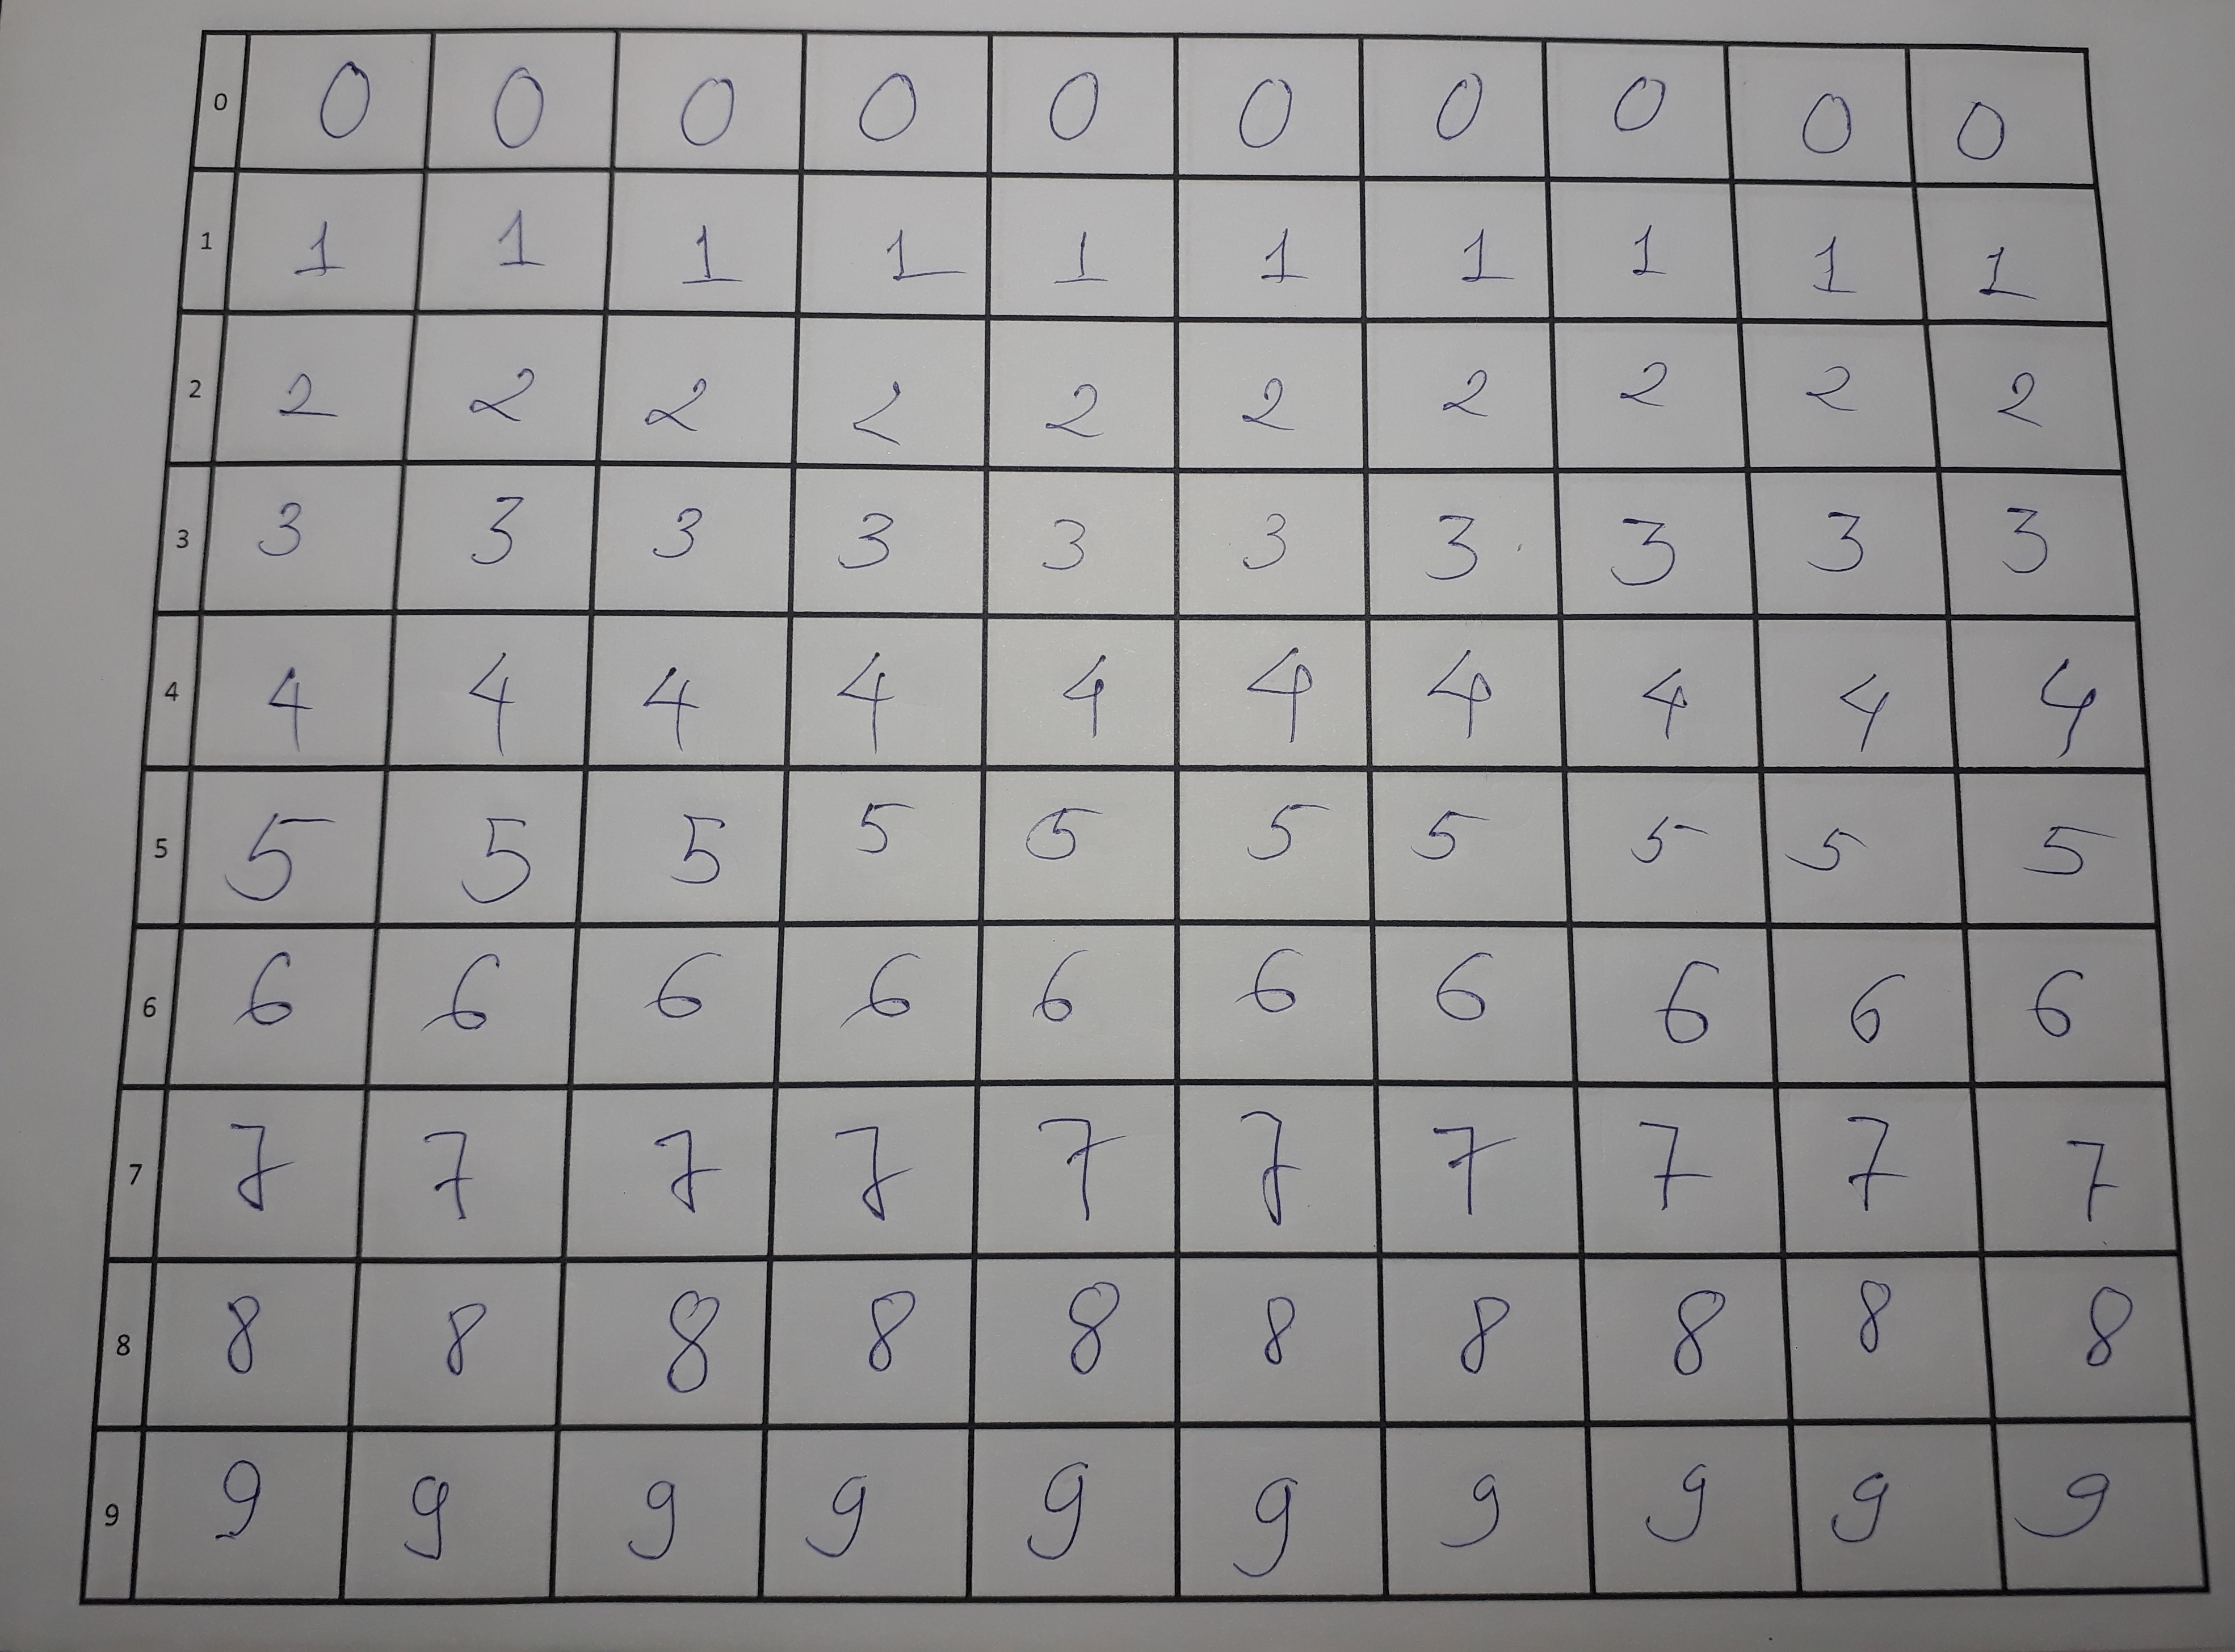 0 0 0 0 0 0 0 0 0 0 0
1 1 1 1 1 1 1 1 1 1 1
2 2 2 2 2 2 2 2 2 2 2
3 3 3 3 3 3 3 3 3 3 3
4 4 4 4 4 4 4 4 4 4 4
5 5 5 5 5 5 5 5 5 5 5
6 6 6 6 6 6 6 6 6 6 6
7 7 7 7 7 7 7 7 7 7 7
8 8 8 8 8 8 8 8 8 8 8
9 9 9 9 9 9 9 9 9 9 9